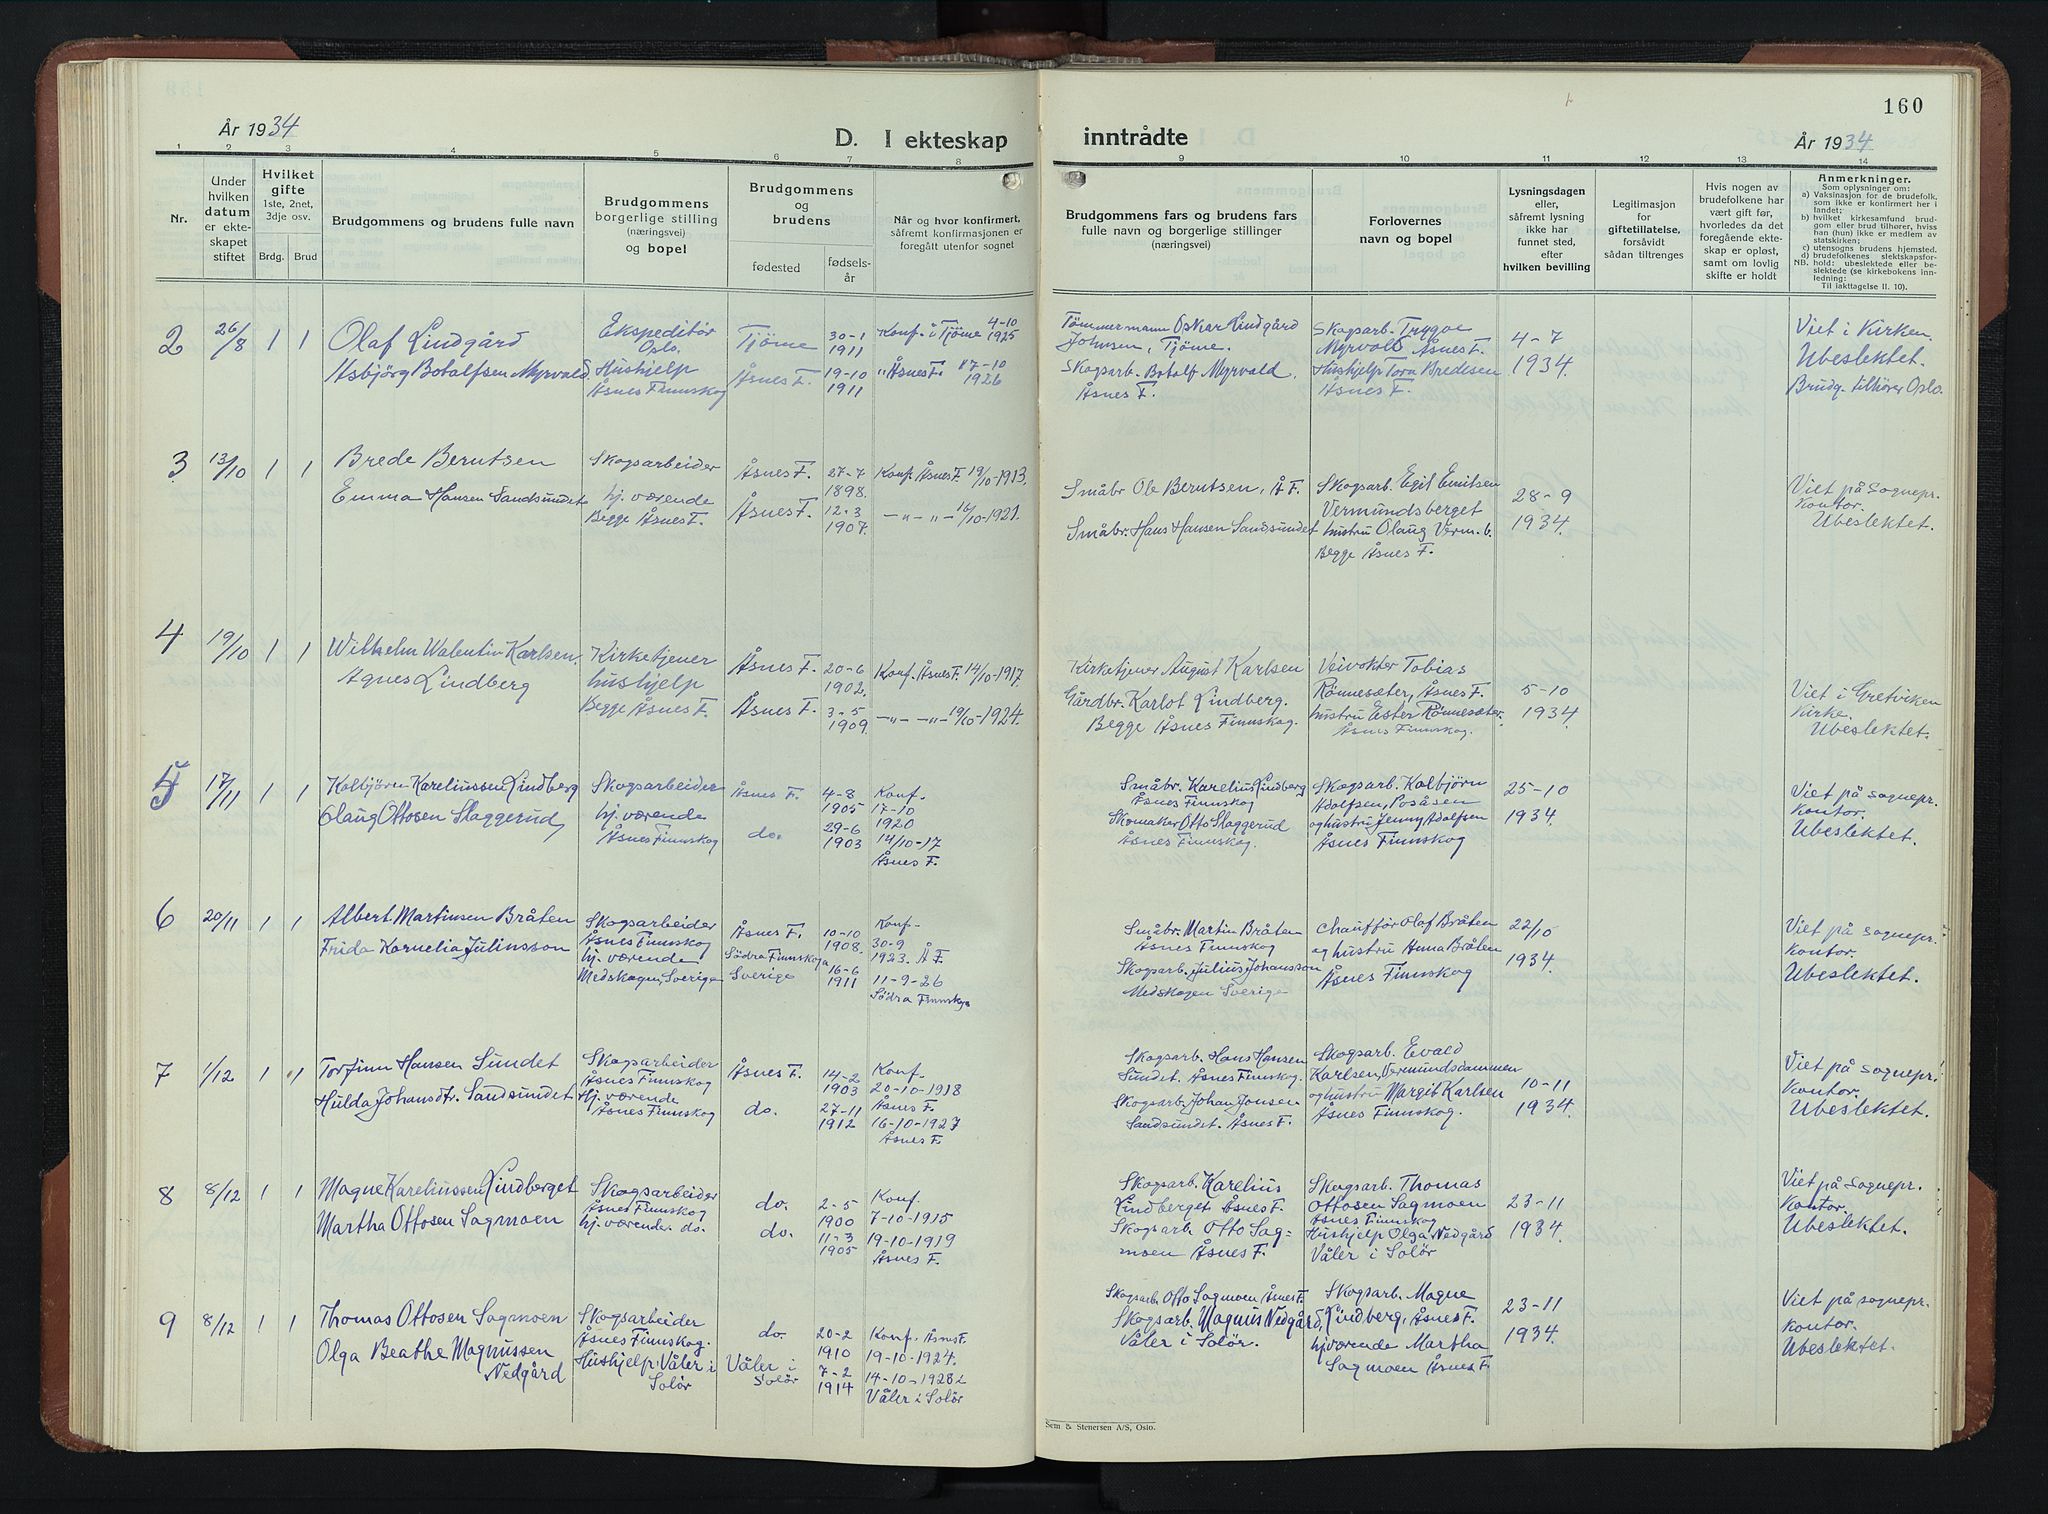 160
År 1934
D. I ekteskap
inntrådte
År 1934
1 2 3 4 5 6 7 8 9 10 11 12 13 14
Nr.
Under hvilken datum er ekteskapet stiftet
Hvilket gifte
1ste, 2net, 3dje osv.
Brdg. Brud
Brudgommens og brudens fulle navn
Brudgommens borgerlige stilling (næringsvei) og bopel
Brudgommens og brudens
fødested
fødsels-år
Når og hvor konfirmert, såfremt konfirmasjonen er foregått utenfor sognet
Brudgommens fars og brudens fars fulle navn og borgerlige stillinger (næringsvei)
Forlovernes navn og bopel
Lysningsdagen eller, såfremt lysning ikke har funnet sted, efter hvilken bevilling
Legitimasjon for giftetillatelse, forsåvidt sådan tiltrenges
Hvis nogen av brudefolkene har vært gift før, hvorledes da det foregående ekteskap er opløst, samt om lovlig skifte er holdt
Anmerkninger.
Som oplysninger om:
a) Vaksinasjon for de brudefolk, som ikke er konfirmert her i landet;
b) hvilket kirkesamfund brudgom eller brud tilhører, hviss han (hun) ikke er medlem av statskirken;
c) utensogns brudens hjemsted.
d) brudefolkenes slektskapsforhold: ubeslektede eller beslektede (se kirkebokens innledning:
NB.
Til iakttagelse II. 10).
2 26/8 1 1
Olaf Lindgård
Asbjörg Botolfsen Myrvold
Ekspeditör
Oslo.
Hushjelp
Åsnes Finnskog
Tjöme
Åsnes F.
30-1
1911
19-10
1911
Konf. i Tjöme 4-10 1925
" Åsnes F. 17-10 1926
Tömmermann Oskar Lindgård
Johnsen, Tjöme.
Skogsarb. Botolf Myrvald.
Åsnes F.
Skogsarb. Trygve
Myrvold Åsnes F.
Hushjelp Tora Bredesen
Åsnes F.
4-7
1934.
Viet i Kirken
Ubeslektet.
Brudg. tilhörer Oslo.
3 13/10 1 1
Brede Berntsen
Emma Hansen Sandsundet
Skogsarbeider
hj. værende
Begge Åsnes F.
Åsnes F.
Åsnes F.
27-7
1898.
12-3
1907.
Konf. Åsnes F. 19/10-1913.
-"- "- 16/10-1921.
Småbr Ole Berntsen, Å F.
Småbr. Hans Hansen Sandsundet
Skogsarb. Egil Emilsen
Vermundsberget
hustru Olaug Verm.b.
Begge Åsnes F.
28-9
1934.
Viet på Sognepr.
Kontor.
Ubeslektet.
4 19/10 1 1
Wilhelm Walentin Karlsen.
Agnes Lindberg
Kirketjener
hushjelp
Begge Åsnes F.
Åsnes F.
Åsnes F.
20-6
1902.
3-5
1909.
Konf. Åsnes F. 14/10-1917.
-"- -"- 19/10-1924.
Kirketjener August Karlsen
Gårdbr. Karlot Lindberg.
Begge Åsnes Finnskog.
Veivokter Tobias
Rönnesæter, Åsnes F.
hustru Ester Rönnesæter.
Åsnes Finnskog.
5-10
1934.
Viet i Gretviken
Kirke.
Ubeslektet.
5 17/11 1 1
Kolbjören Kareliussen Lindberg
Olaug Ottosen Slaggerud
Skogsarbeider
hj. værende
Åsnes Finnskog
Åsnes F.
do.
4-8
1905
29-6
1903
Konf.
17-10
1920
14/10-17
Åsnes F.
Småbr. Karelius Lindberg
Åsnes Finnskog
Skomaker Otto Slaggerud
Åsnes Finnskog.
Skogsarb. Kolbjörn
Adolfsen, Posåsen
og hustru Jenny Adolfsen
Åsnes Finnskog
25-10
1934.
Viet på sognepr.
Kontor.
Ubeslektet.
6 20/11 1 1
Albert Martinsen Bråten
Frida Kornelia Juliusson
Skogsarbeider
Åsnes Finnskog
hj. værende
Medskogen, Sverige
Åsnes F.
Södra Finnskoga
Sverige
10-10
1908.
16-6
1911
Konf.
30-9
1923. Å F.
11-9-26
Södra Finnskoga
Småbr. Martin Bråten
Åsnes Finnskog
Skogsarb. Julius Johansson
Medskogen Sverige
Chaufför Olaf Bråten
og hustru Anna Bråten
Åsnes Finnskog
22/10
1934.
Viet på sognepr.
kontor.
Ubeslektet.
7 1/12 1 1
Torfinn Hansen Sundet
Hulda Johansdtr. Sandsundet
Skogsarbeider
Åsnes Finnskog
Hj. værende
Åsnes Finnskog
Åsnes F.
do.
14-2
1903
27-11
1912
Konf.
20-10-1918
Åsnes F.
16-10-1927
Åsnes F.
Skogsarb. Hans Hansen
Sundet. Åsnes Finnskog.
Skogsarb. Johan Jonsen
Sandsundet. Åsnes F.
Skogsarb. Evald
Karlsen, Vermundsdammen
og hustru Margit Karlsen
Åsnes Finnskog.
10-11
1934.
Viet på sognepr.
Kontor.
Ubeslektet.
8 8/12 1 1
Magne Kareliussen Lindberget
Martha Ottosen Sagmoen
Skogsarbeider
Åsnes Finnskog
hj. værende. do.
do.
do.
2-5
1900
11-3
1905
Konf.
7-10-1915
19-10-1919
Åsnes F.
Skogsarb. Karelius
Lindberget Åsnes F.
Skogsarb. Otto Sag-
moen Åsnes F.
Skogsarb. Thomas
Ottosen Sagmoen
Åsnes Finnskog
Hushjelp Olga Nedgård
Våler i Solör
23-11
1934.
Viet på sognepr.
Kontor.
Ubeslektet.
9 8/12 1 1
Thomas Ottosen Sagmoen
Olga Beathe Magnussen
Nedgård
Skogsarbeider
Åsnes Finnskog.
Hushjelp Våler i
Solör
do.
Våler i
Solör
20-2
1910
7-2
1914
Konf. Åsnes F.
19-10-1924.
14-10-1928 i
Våler i Solör
Skogsarb. Otto Sagmoen Åsnes F.
Skogsarb. Magnus Nedgård,
Våler i Solör.
Skogsarb. Magne
Lindberg, Åsnes F.
hj. værende Martha
Sagmoen Åsnes F.
23-11
1934.
Viet på sognepr.
kontor.
Ubeslektet.
Sem & Stenersen A/S, Oslo.